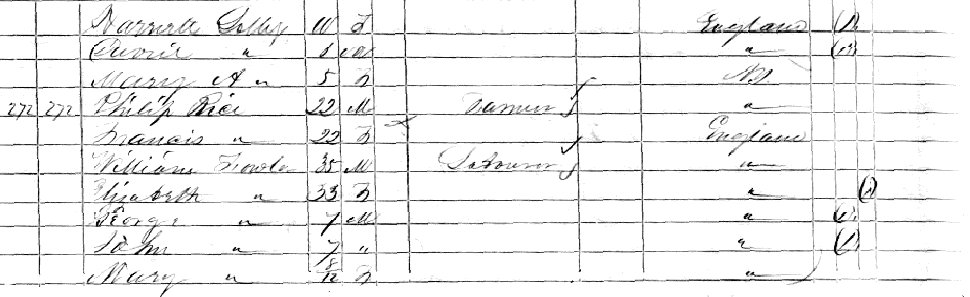 Harriette " 10 F England (1)
" 8 M " (1)
Mary A " 5 F NY
272 272 Philip Rice 22 M Farmer "
Francis " 22 F England
William Fowler 35 M Labourer "
Elizabeth " 33 F " (1)
George " 7 M " (1)
John " 7 " " (1)
Mary " 8/12 F "